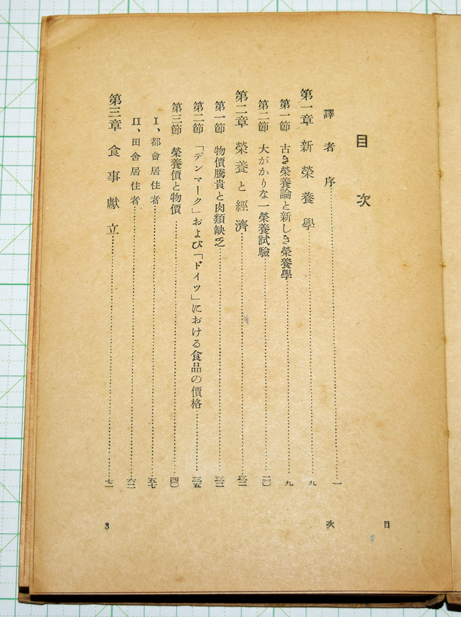 目次
譯者序……一
第一章 新榮養學……九
第一節 古き榮養論と新しき榮養學……九
第二節 大がかりな一榮養試驗……二〇
第二章 榮養と經濟……三二
第一節 物價騰貴と肉類缺乏……三二
第二節 「デンマーク」および「ドイツ」における食品の價格……三五
第三節 榮養價と物價……四〇
I、都會居住者……五七
II、田舍居住者……六二
第三章 食事獻立……七一
目次
3